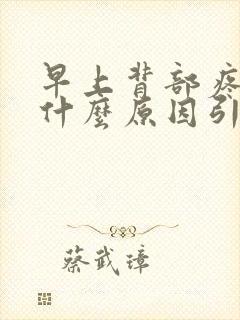 早上背部疼
什麼原因引
蔡武璋